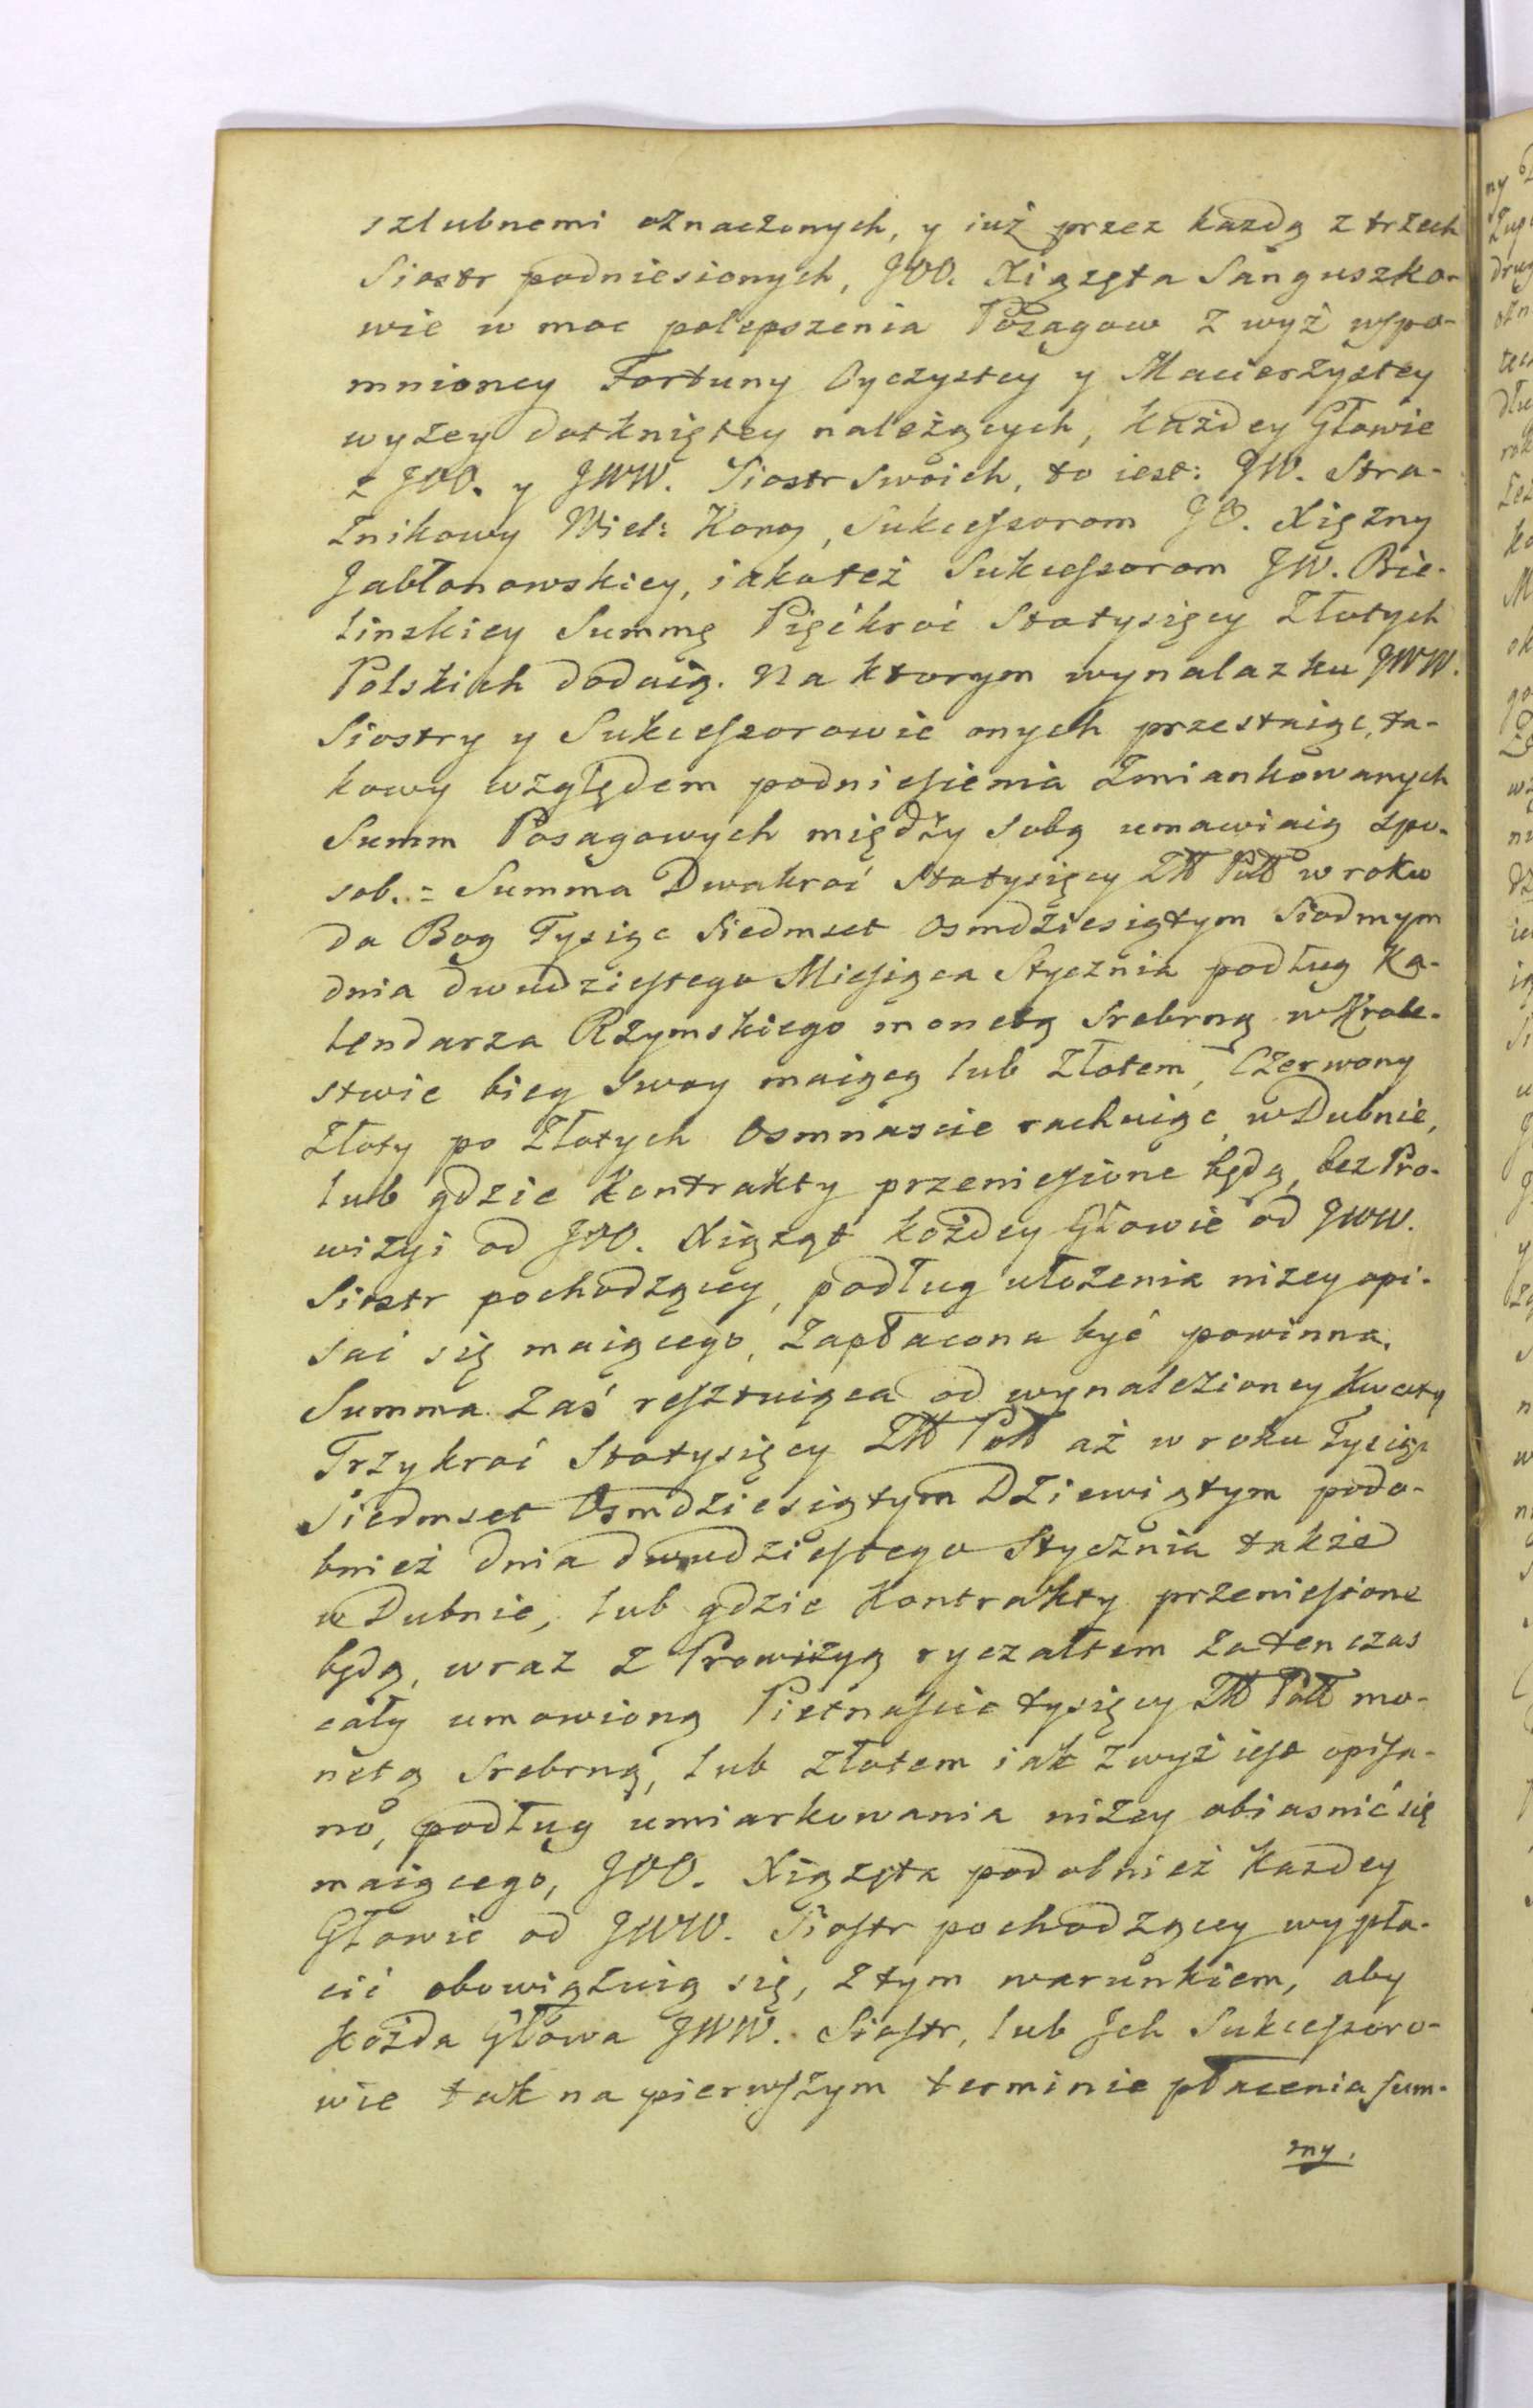 szlubnemi oznaczonych, y iuż przez każdą z trzech
Siostr podniesionych, JOO. Xiązęta Sanguszko-
wie w moc polepszenia Posagow z wyż wspo-
mnioney Fortuny Oyczystey y Macierzystey
wyżey dotkniętey należących, każdey Głowie
z JOO. y JWW. Siostr Swoich, to iest: JW. Stra-
żnikowy Wiel: Koroy, Sukcessorom JO. Xiężny
Jabłonowskiey, iakoteż Sukcessorom JW. Bie-
linskiey Summę Pięćkroć Stotysięcy Złotych
Polskich dodaią. Na ktorym wynalazku JWW.
Siostry y Sukcessorowie onych przestaiąc, ta-
kowy względem podniesienia zmiankowanych
Summ Posagowych między sobą umawiaią spo-
sob. = Summa Dwakroć Stotysięcy Złł Poll w roku
da Bog Tysiąc Siedmset Osmdziesiątym Siodmym
dnia dwudziestego Miesiąca Stycznia podług Ka-
lendarza Rzymskiego monetą Srebrną w Krole-
stwie bieg swoy maiącą lub złotem, Czerwony
Złoty po Złotych Osmnascie rachuiąc, w Dubnie,
lub gdzie Kontrakty przeniesione będą, bez Pro-
wizyi od JOO. Xiąząt każdey Głowie od JWW.
Siostr pochodzącey, podług ułożenia niżey opi-
sać się maiącego, zapłacona być powinna.
Summa zaś resztuiąca od wynalezioney Kwoty
Trzykroć Stotysięcy Złł Poll aż w roku Tysiąc
Siedmset Osmdziesiątym Dziewiątym podo-
bnież dnia dwudziestego Stycznia także
w Dubnie, lub gdzie Kontrakty przeniesione
będą, wraz z Prowizyą ryczałtem za ten czas
cały umowioną Pietnaście tysięcy Złł Poll mo-
netą Srebrną, lub złotem iak zwyż iest opisa-
no, podług umiarkowania niżey obiasnić się
maiącego, JOO. Xiązęta podobnież każdey
Głowie od JWW. Siostr pochodzącey wypła-
cić obowiązuią się, z tym warunkiem, aby
każda Głowa JWW. Siostr, lub Jch Sukcessoro-
wie tak na pierwszym terminie płacenia Sum-
my.